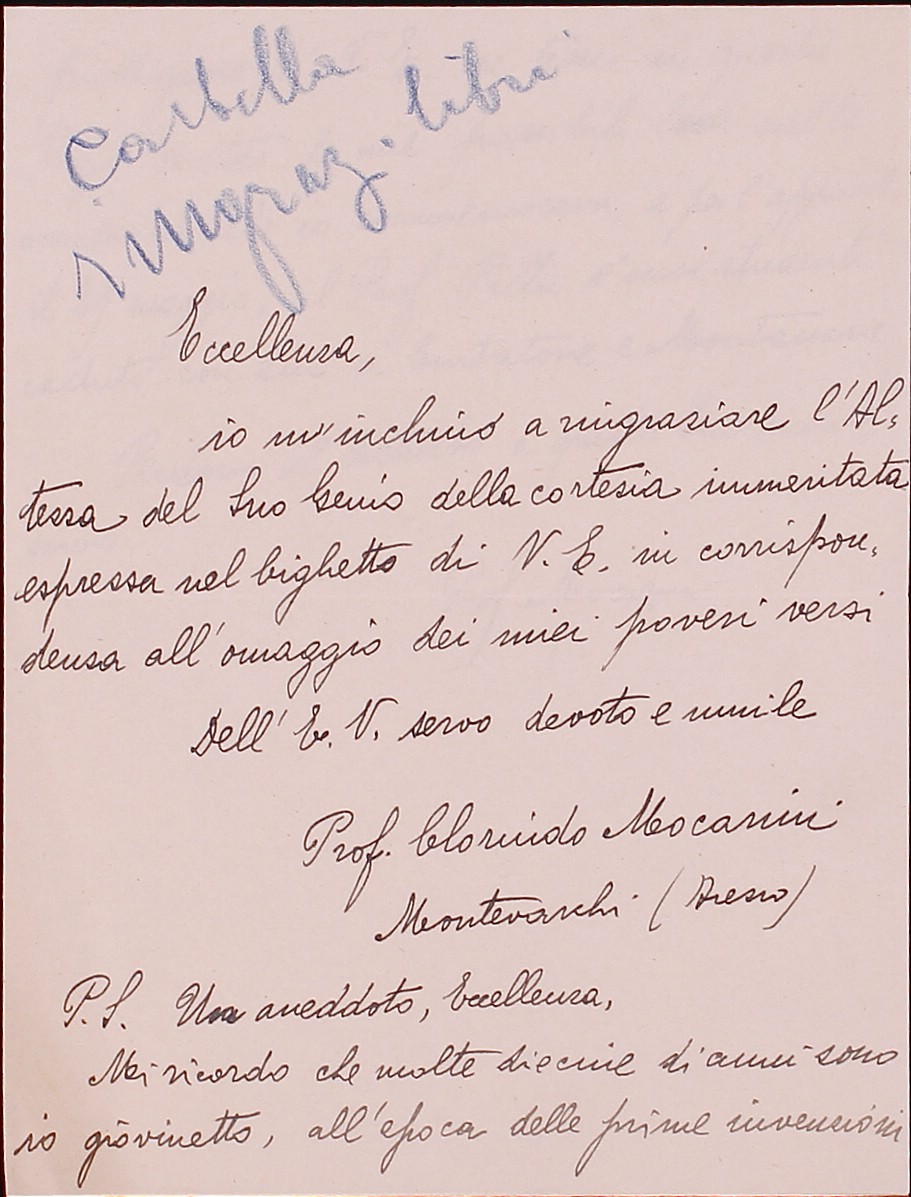 Cartella
ringraz. libri
Eccellenza,
io m'inchino a ringraziare l'Al-
tezza del Suo Genio della cortesia immeritata
espressa nel bighetto di V. E. in corrispon-
denza all'omaggio dei miei poveri versi
Dell'E. V. servo devoto e umile
Prof. Clorindo Mocarini
Montevarchi (Arezzo)
P.S. Un aneddoto, Eccellenza,
Mi ricordo che molte diecine di anni sono
io giovinetto, all'epoca delle prime invenzioni